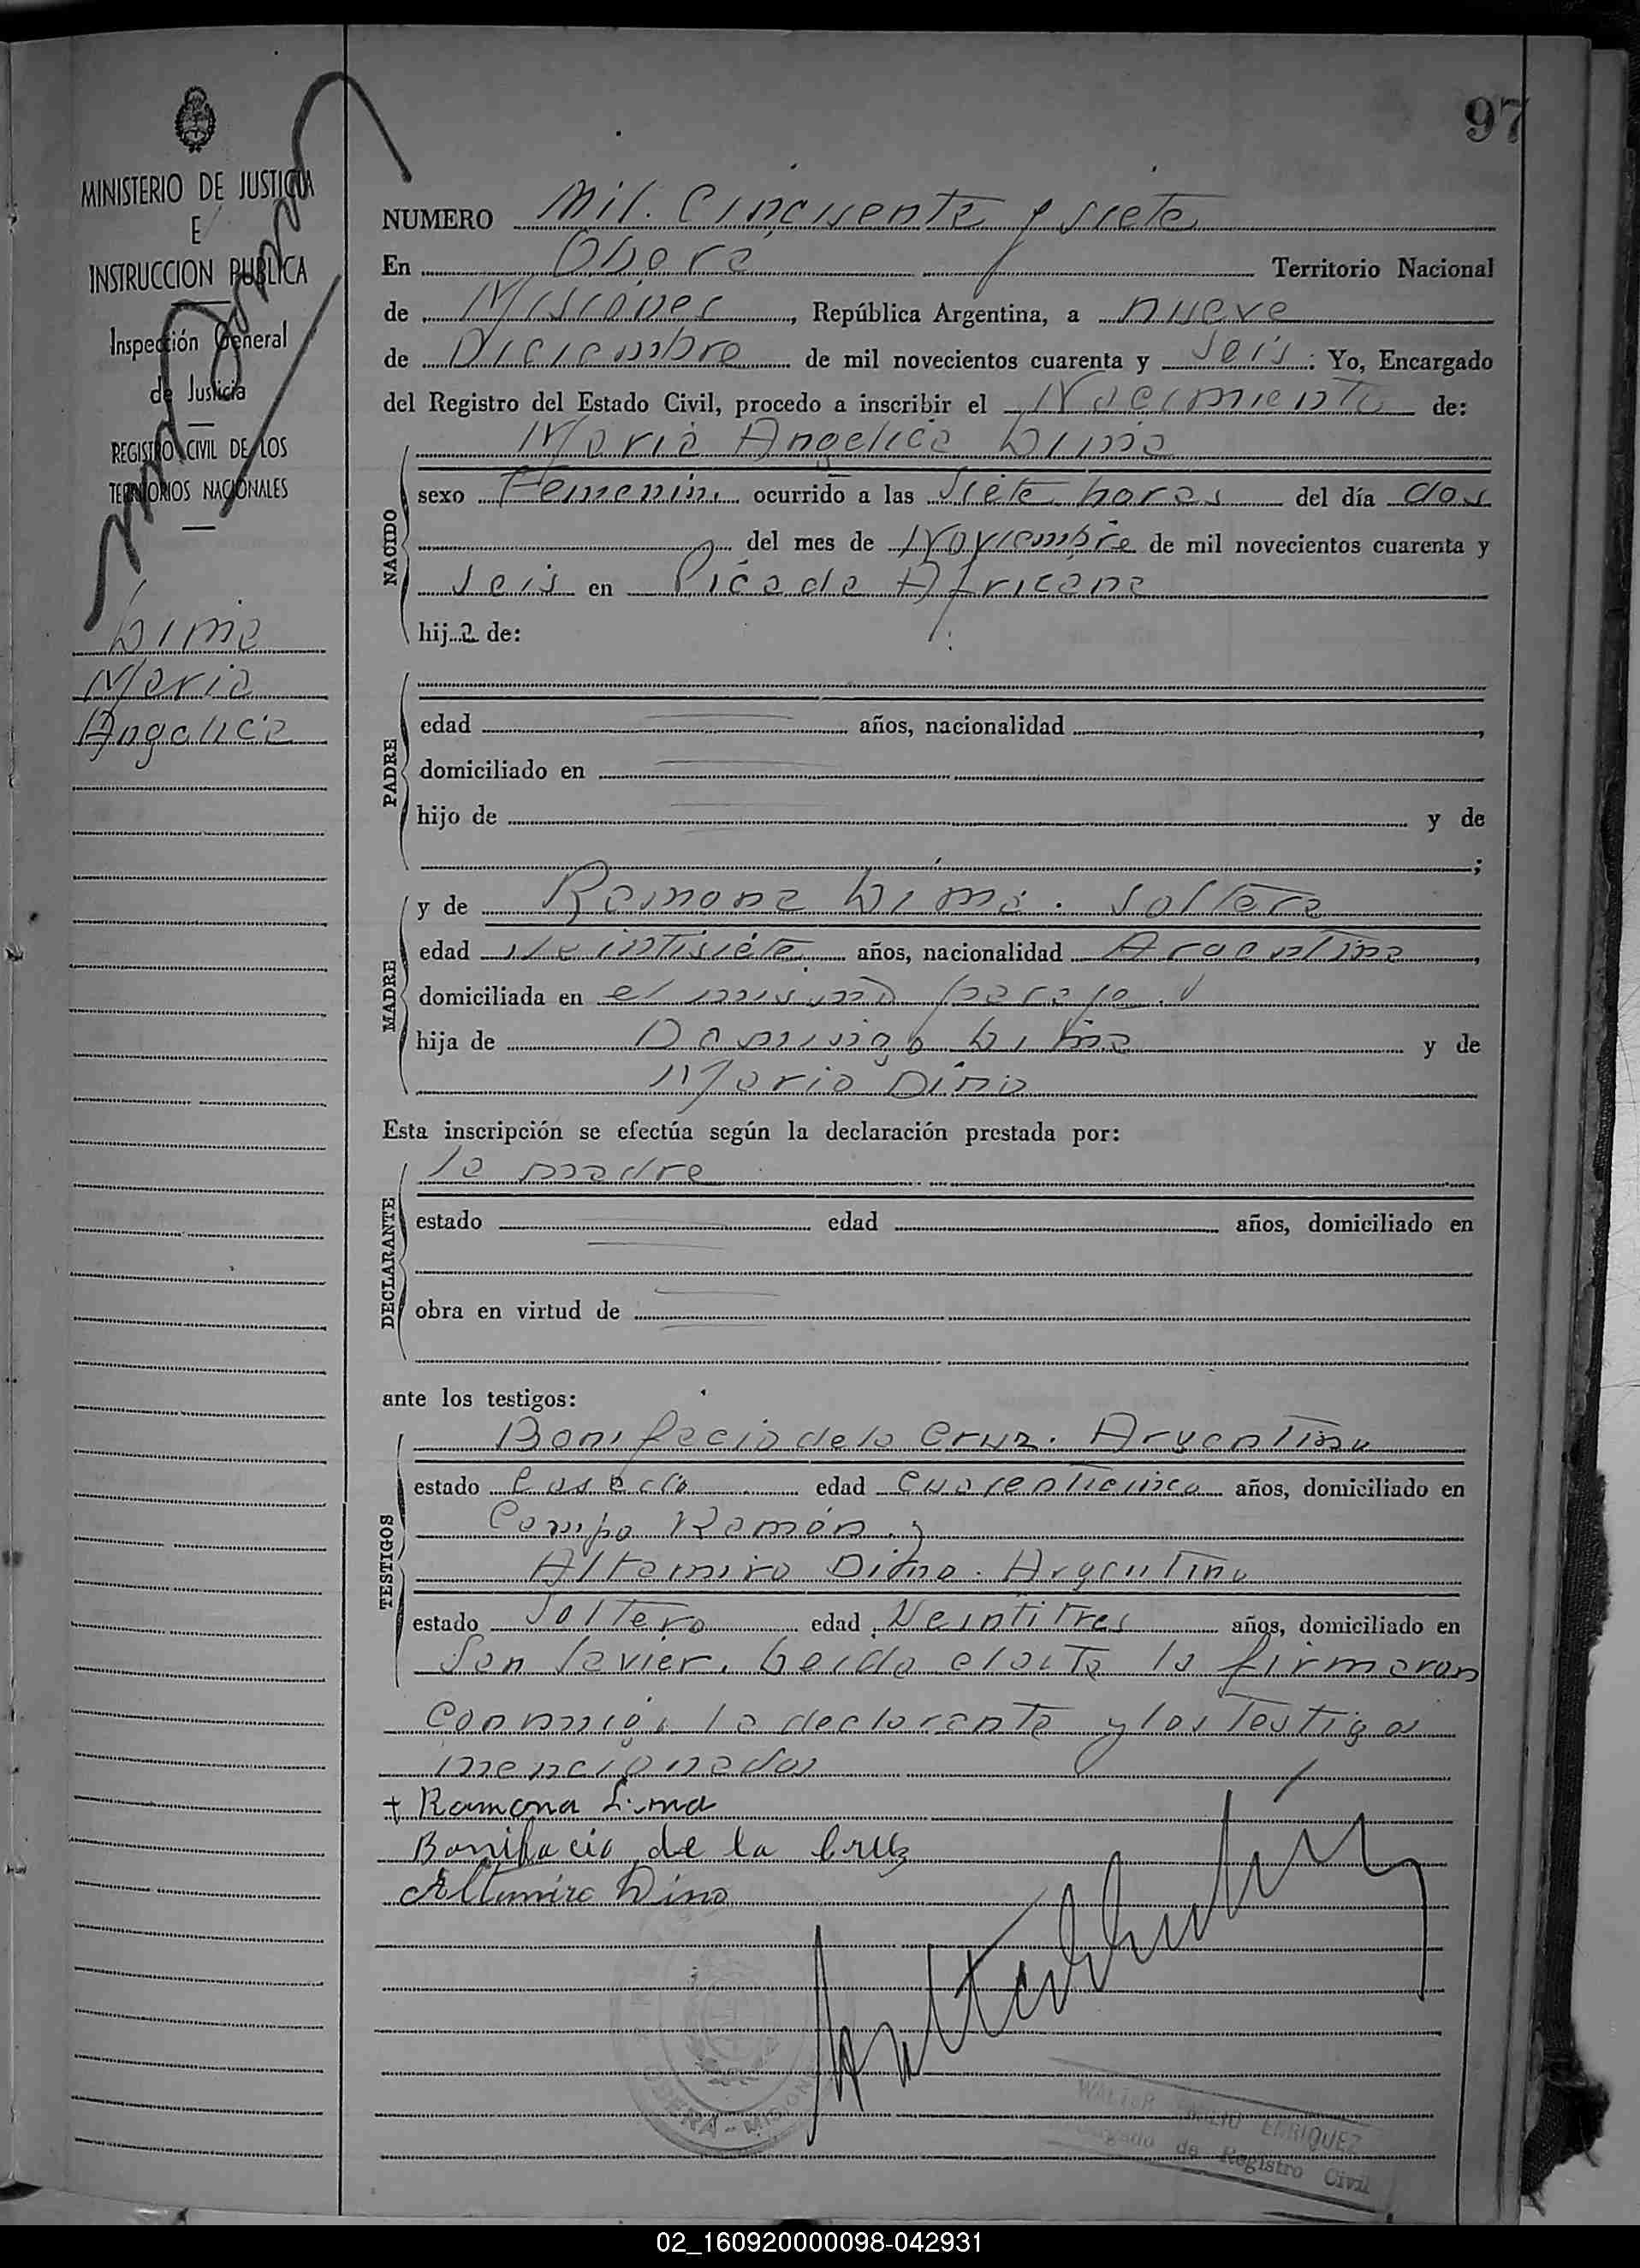 97
MINISTERIO DE JUSTICIA
E
INSTRUCCION PUBLICA
Inspección General
de Justicia
REGISTRO CIVIL DE LOS
TERRITORIOS NACIONALES
Lima
Maria
Angelica
NUMERO Mil. Cincuenta y siete
En Obera Territorio Nacional
de Misiones, República Argentina, a nueve
de Diciembre de mil novecientos cuarenta y seis: Yo, Encargado
del Registro del Estado Civil, procedo a inscribir el Nacimiento de:
NACIDO
Maria Angelica Lima
sexo Femenino ocurrido a las siete horas del día dos
del mes de Noviembre de mil novecientos cuarenta y
seis en Picada Africana
hija de:
PADRE
edad años, nacionalidad ,
domiciliado en
hijo de y de
;
MADRE
y de Ramona Lima. soltera
edad veintisiete años, nacionalidad Argentina,
domiciliada en el mismo paraje.
hija de Domingo Lima y de
Maria Dina
Esta inscripción se efectúa según la declaración prestada por:
DECLARANTE
la madre
estado edad años, domiciliado en
obra en virtud de
ante los testigos:
TESTIGOS
Bonifacio de la Cruz. Argentino
estado Casado edad Cuarenticinco años, domiciliado en
Campo Ramón. y
Altamiro Dino. Argentino
estado Soltero edad Veintitres años, domiciliado en
San Javier. Leida el acta la firmaron
conmigo la declarante y los testigos
mencionados
+ Ramona Lima
Bonifacio de la Cruz
Altamiro Dino
OBERA - MISIONES
WALTER EMILIO ENRIQUEZ
Encargado de Registro Civil
02_160920000098-042931